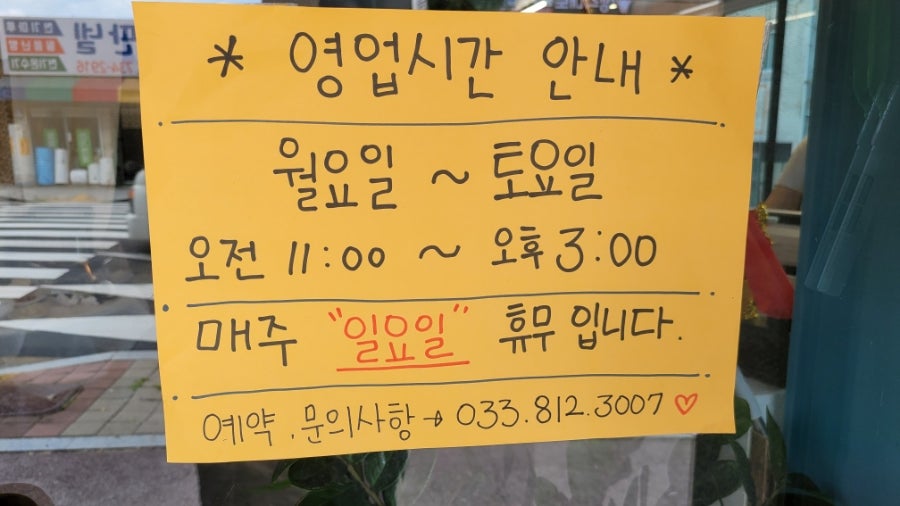 * 영업시간 안내 *
월요일 ~ 토요일
오전 11:00 ~ 오후 3:00
매주 "일요일" 휴무 입니다.
예약. 문의사항→ 033.812.3007 ♡
판넬
전기온수기
734-2916